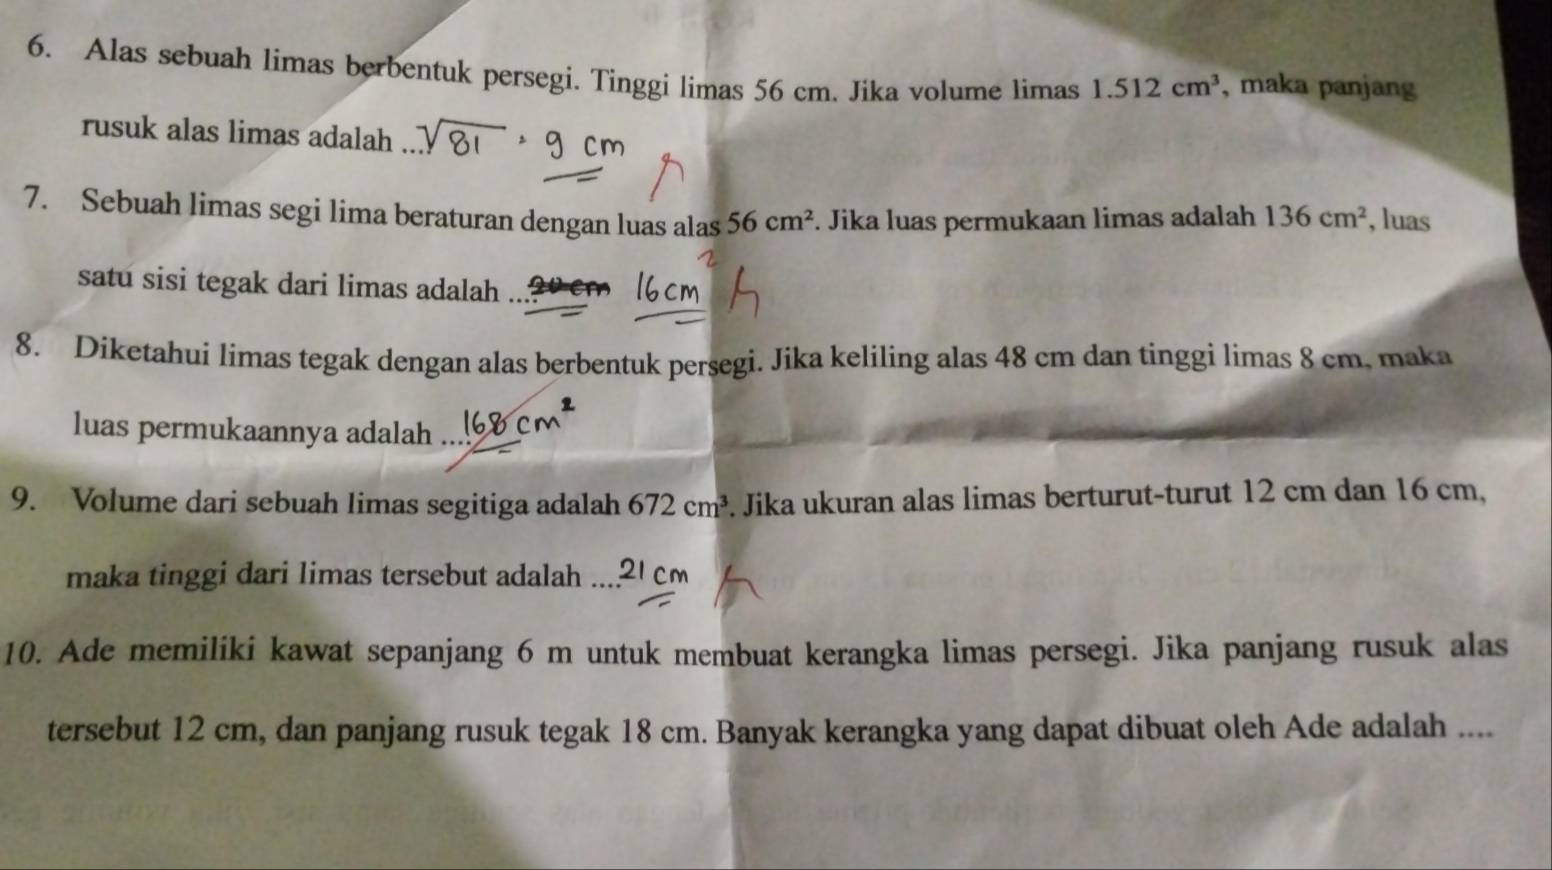 6. Alas sebuah limas berbentuk persegi. Tinggi limas 56 cm. Jika volume limas 1.512 cm³, maka panjang
rusuk alas limas adalah ... √81 = 9 cm
7. Sebuah limas segi lima beraturan dengan luas alas 56 cm². Jika luas permukaan limas adalah 136 cm², luas
satu sisi tegak dari limas adalah .... 20 cm 16 cm²
8. Diketahui limas tegak dengan alas berbentuk persegi. Jika keliling alas 48 cm dan tinggi limas 8 cm, maka
luas permukaannya adalah .... 168 cm²
9. Volume dari sebuah limas segitiga adalah 672 cm³. Jika ukuran alas limas berturut-turut 12 cm dan 16 cm,
maka tinggi dari limas tersebut adalah .... 21 cm
10. Ade memiliki kawat sepanjang 6 m untuk membuat kerangka limas persegi. Jika panjang rusuk alas
tersebut 12 cm, dan panjang rusuk tegak 18 cm. Banyak kerangka yang dapat dibuat oleh Ade adalah ....